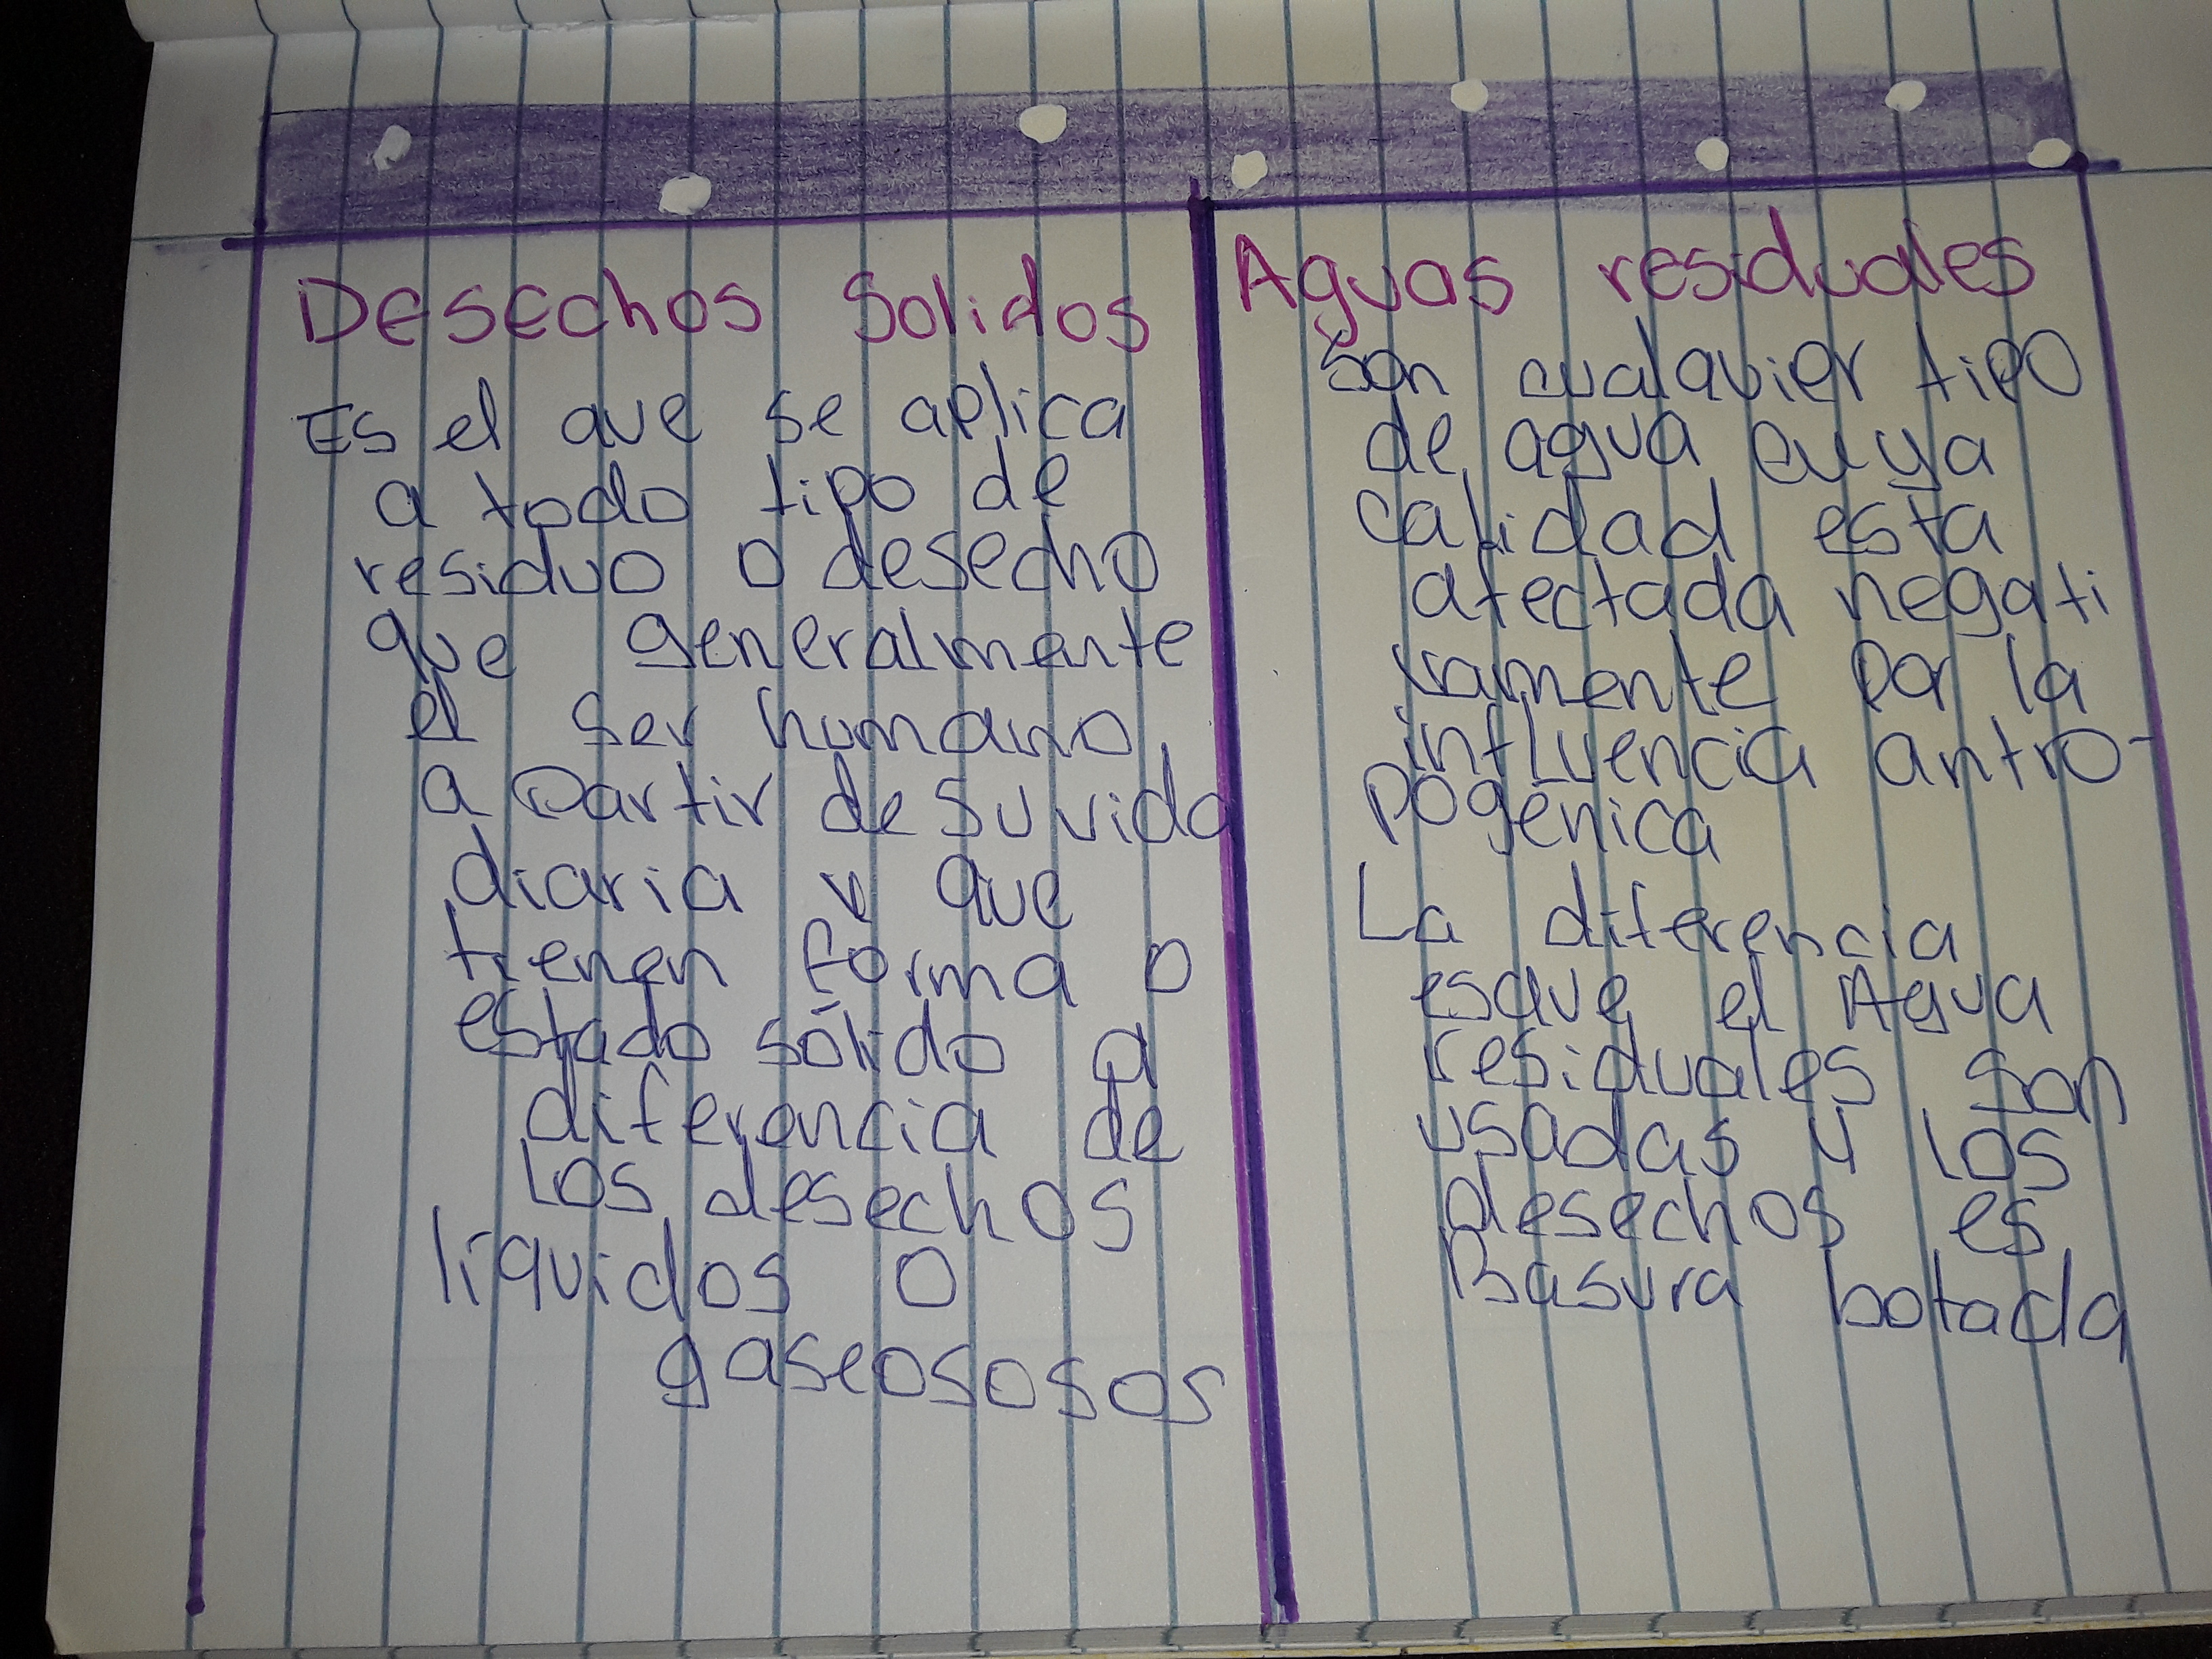 Desechos Solidos
Es el que se aplica
a todo tipo de
residuo o desecho
que generalmente
el ser humano
a Partir de su vida
diaria y que
tienen forma o
estado sólido a
diferencia de
los desechos
líquidos o
gaseososos
Aguas residuales
Son cualquier tipo
de agua cuya
calidad esta
afectada negati
vamente por la
influencia antro-
pogénica
La diferencia
esque el Agua
residuales son
usadas y los
desechos es
Basura botada